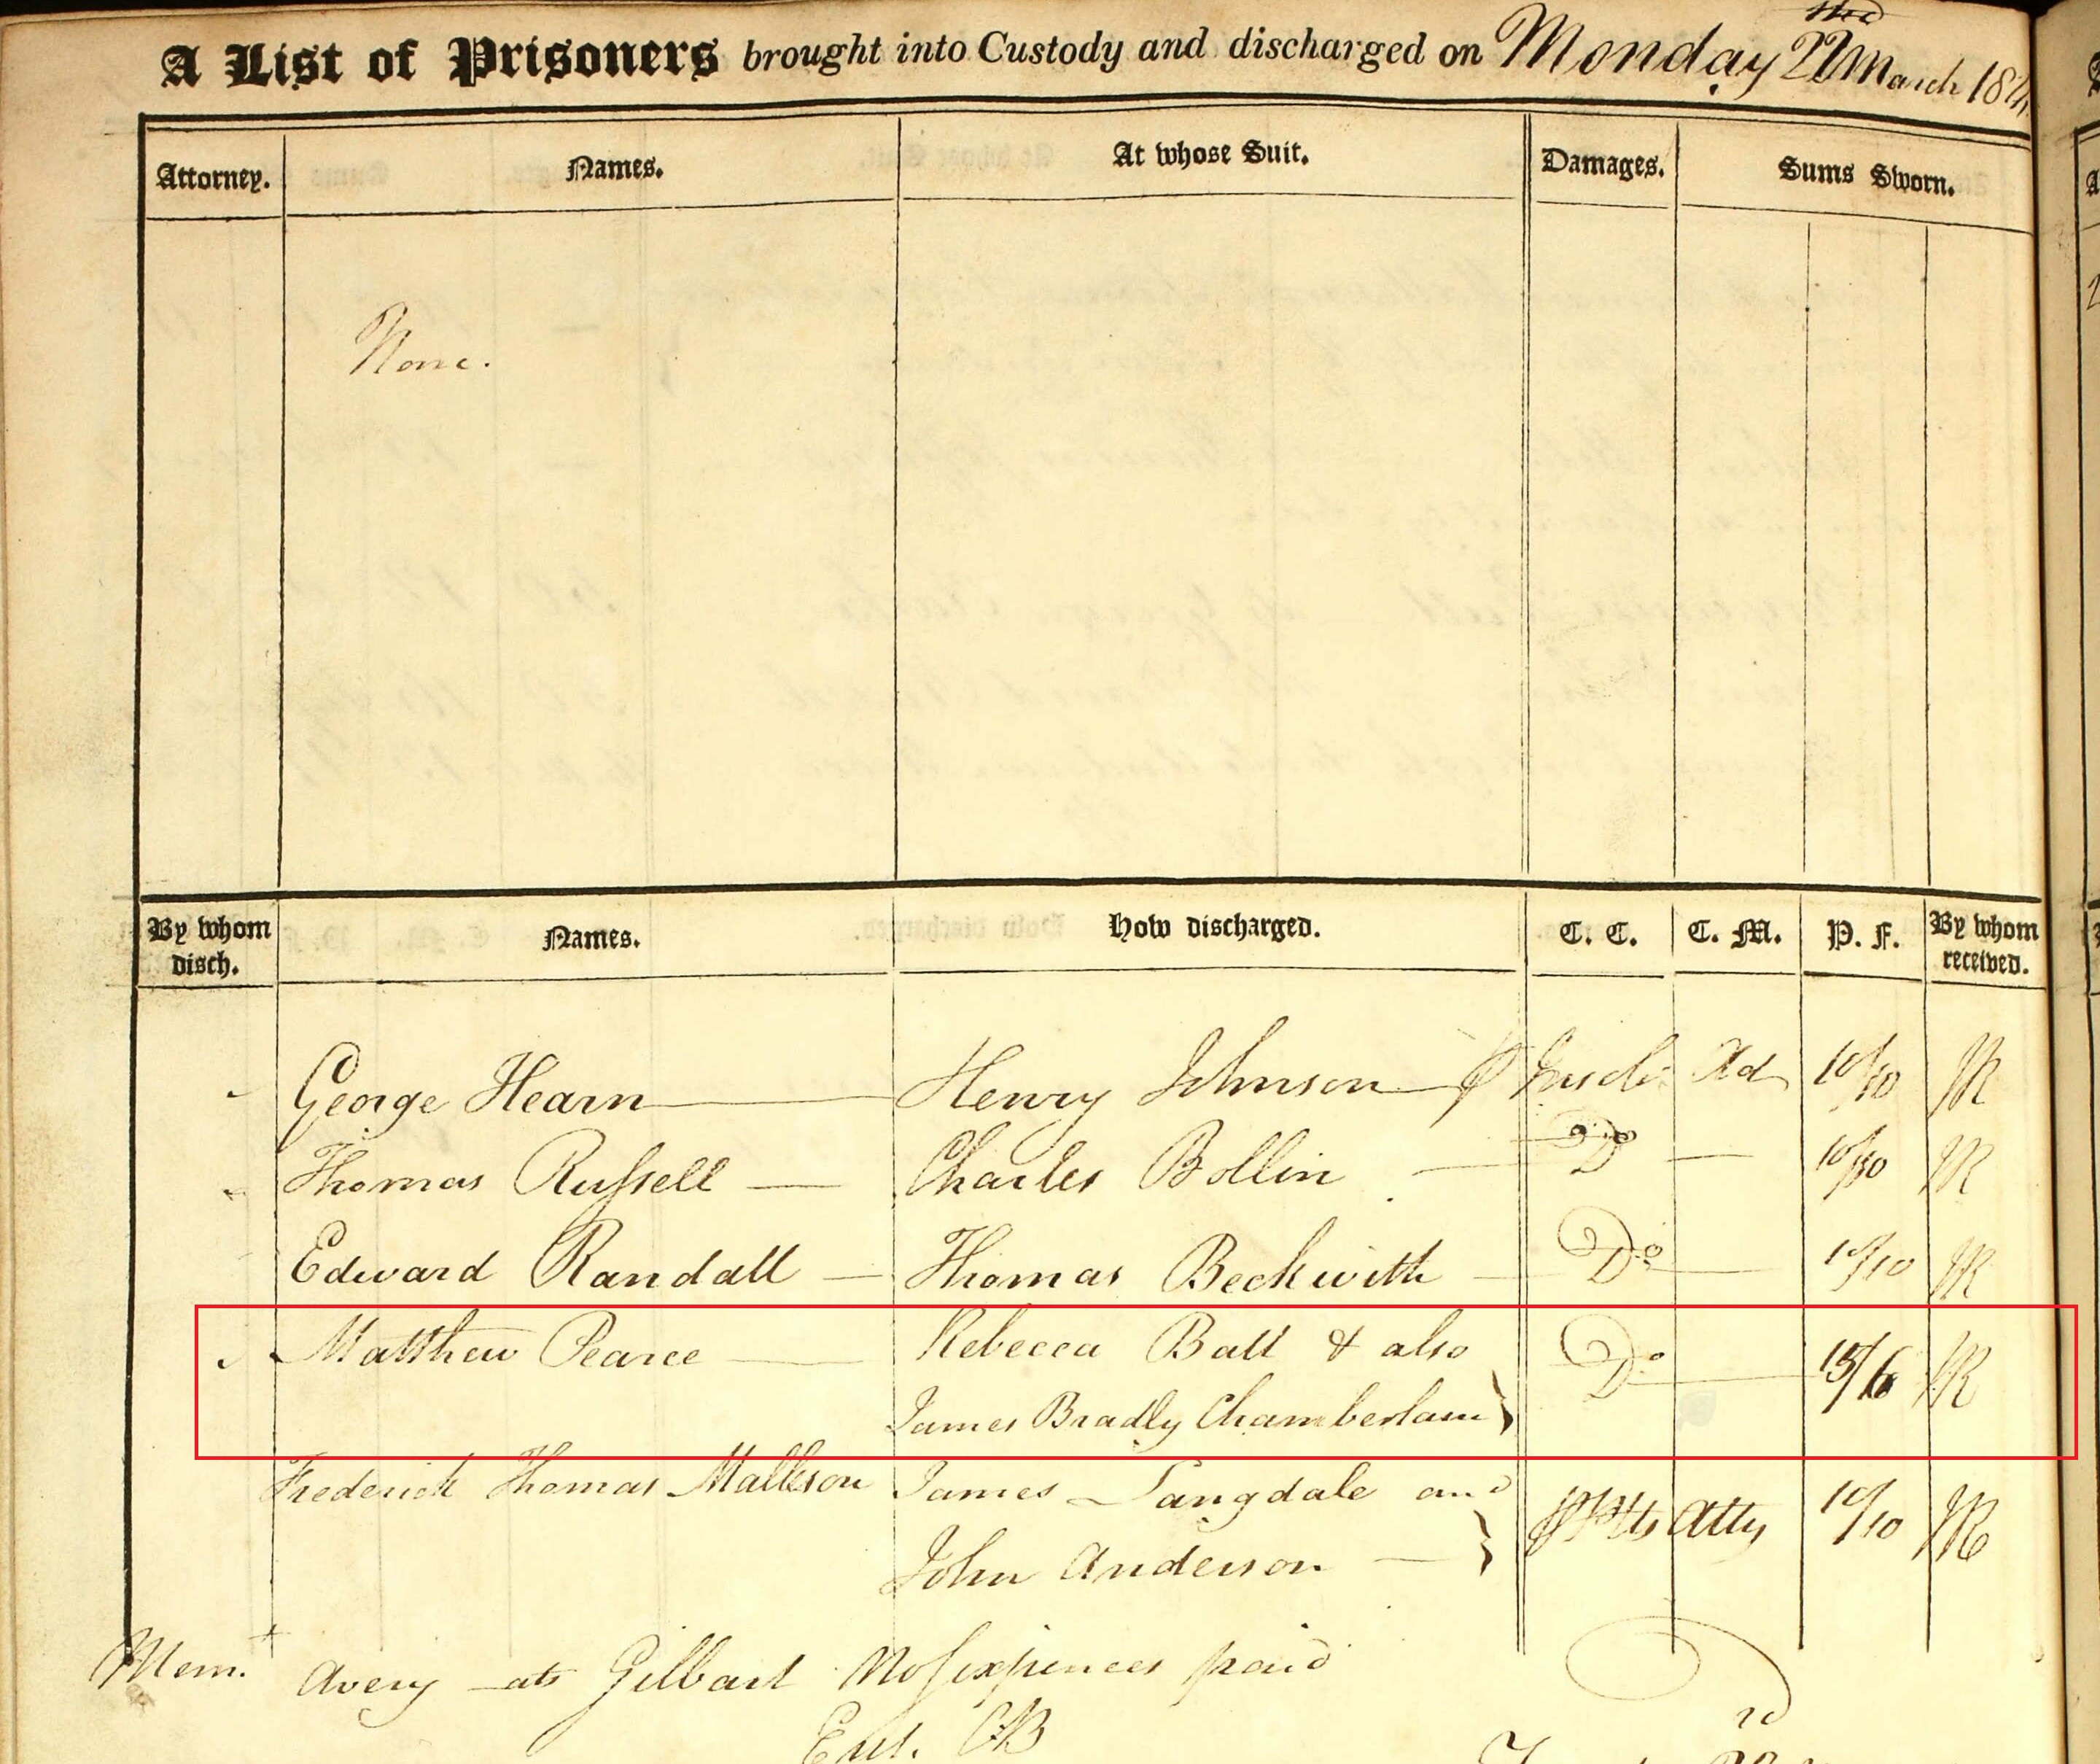 A List of Prisoners brought into Custody and discharged on Monday 22nd March
Attorney. Names. At whose Suit. Damages. Sums Sworn.
None.
By whom disch. Names. How discharged. C. C. C. M. P. F. By whom received.
George Hearn Henry Johnson Ad 10/10
Thomas Russell Charles Bollin Do 10/10
Edward Randall Thomas Beckwith Do 10/10
Matthew Pearce Rebecca Ball & also Do 15/6
James Bradly Chamberlain
Frederick Thomas Malleson James Langdale and Atty 10/10
John Anderson
Mem. Avery ats Gilbart No expences paid